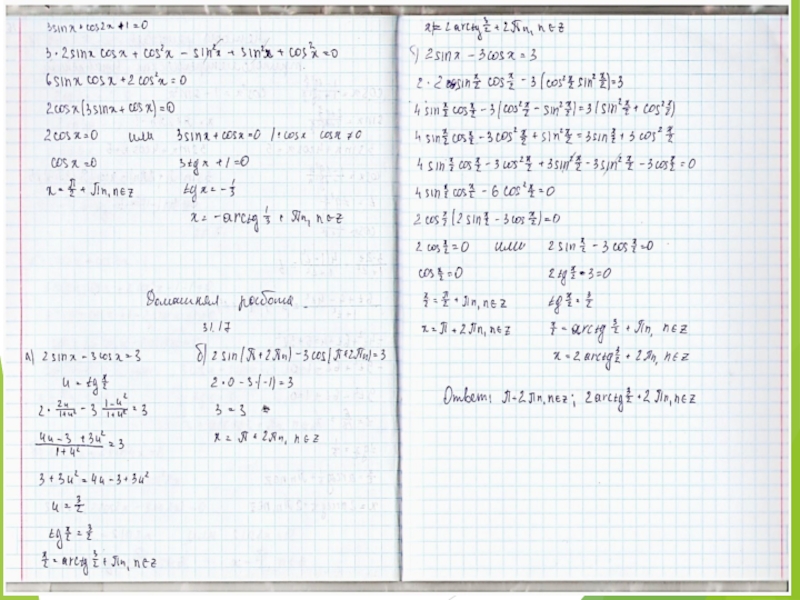 3sinx+cos2x+1=0
3·2sinx cosx + cos²x - sin²x + sin²x + cos²x = 0
6sinx cosx + 2cos²x = 0
2cosx(3sinx + cosx) = 0
2cosx=0 или 3sinx+cosx=0 |÷cosx cosx≠0
cosx=0 3tgx+1=0
x=π/2+πn, n∈z tgx=-1/3
x=-arctg 1/3 + πn, n∈z
Домашняя работа
31.17
а) 2sinx-3cosx=3 б) 2sin(π+2πn)-3cos(π+2πn)=3
u=tg x/2 2·0-3·(-1)=3
2·2u/1+u² - 3 1-u²/1+u² = 3 3=3
4u-3+3u²/1+u² = 3 x=π+2πn, n∈z
3+3u²=4u-3+3u²
u=3/2
tg x/2 = 3/2
x/2=arctg 3/2 + πn, n∈z
x=2arctg 3/2 + 2πn, n∈z
2sinx-3cosx=3
2·2sin x/2 cos x/2 - 3(cos² x/2 sin² x/2)=3
4sin x/2 cos x/2 - 3(cos² x/2 - sin² x/2) = 3(sin² x/2 + cos² x/2)
4sin x/2 cos x/2 - 3cos² x/2 + sin² x/2 = 3sin x/2 + 3cos² x/2
4sin x/2 cos x/2 - 3cos² x/2 + 3sin² x/2 - 3sin² x/2 - 3cos x/2 = 0
4sin x/2 cos x/2 - 6cos² x/2 = 0
2cos x/2 (2sin x/2 - 3cos x/2) = 0
2cos x/2 = 0 или 2sin x/2 - 3cos x/2 = 0
cos x/2 = 0 2tg x/2 - 3 = 0
x/2 = π/2 + πn, n∈z tg x/2 = 3/2
x=π+2πn, n∈z x/2 = arctg 3/2 + πn, n∈z
x=2arctg 3/2 + 2πn, n∈z
Ответ: π+2πn, n∈z; 2arctg 3/2 + 2πn, n∈z